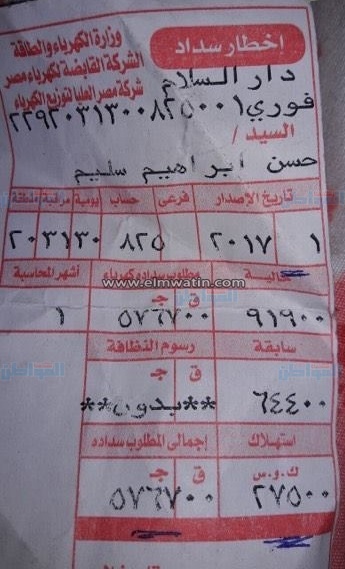 إخطار سداد
وزارة الكهرباء والطاقة
الشركة القابضة لكهرباء مصر
شركة مصر العليا لتوزيع الكهرباء
دار السلام
فوري ٢٢٩٢٠٣١٣٠٠٨٢٥٠٠١
السيد /
حسن ابراهيم سليم
تاريخ الإصدار فرعى حساب يومية مرقبة منطقة
١ ٢٠١٧ ٨٢٥ ٢٠٣١٣٠
حالية مطلوب سداده كهرباء أشهر المحاسبة
www.elmwatin.com
ق ج
٩١٩٠٠ ٥٧٦٧٠٠ ١
سابقة رسوم النظافة
المواطن
ق ج
٦٤٤٠٠ **بدون**
استهلاك إجمالى المطلوب سداده
ك.و.س ق ج
٢٧٥٠٠ ٥٧٦٧٠٠